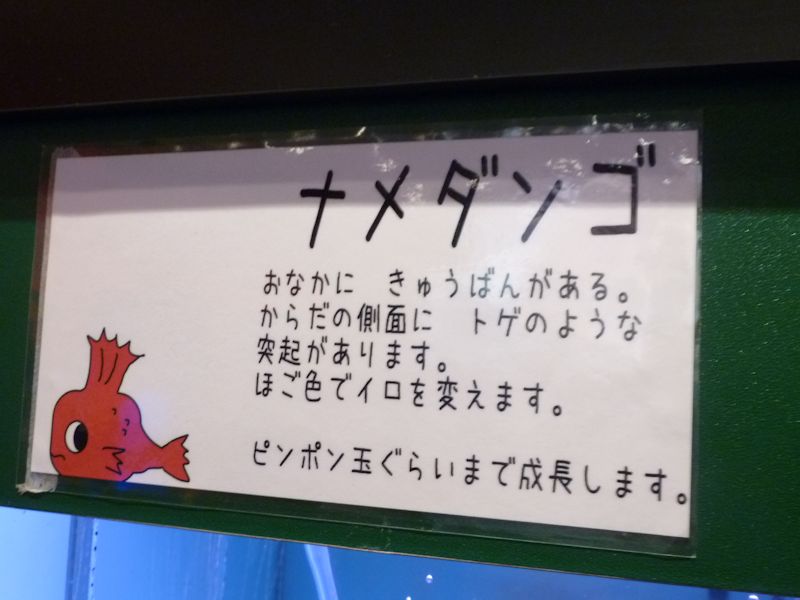 ナメダンゴ
おなかに　きゅうばんがある。
からだの側面に　トゲのような
突起があります。
ほご色でイロを変えます。
ピンポン玉ぐらいまで成長します。